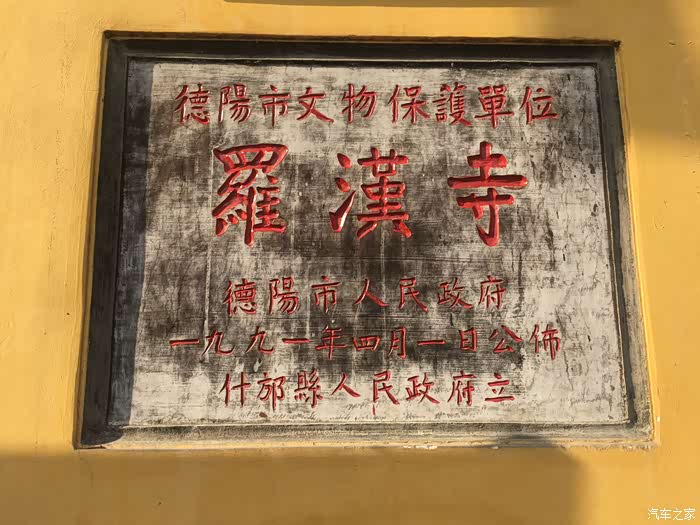 德陽市文物保護單位
羅漢寺
德陽市人民政府
一九九一年四月一日公佈
什邡縣人民政府立
汽车之家